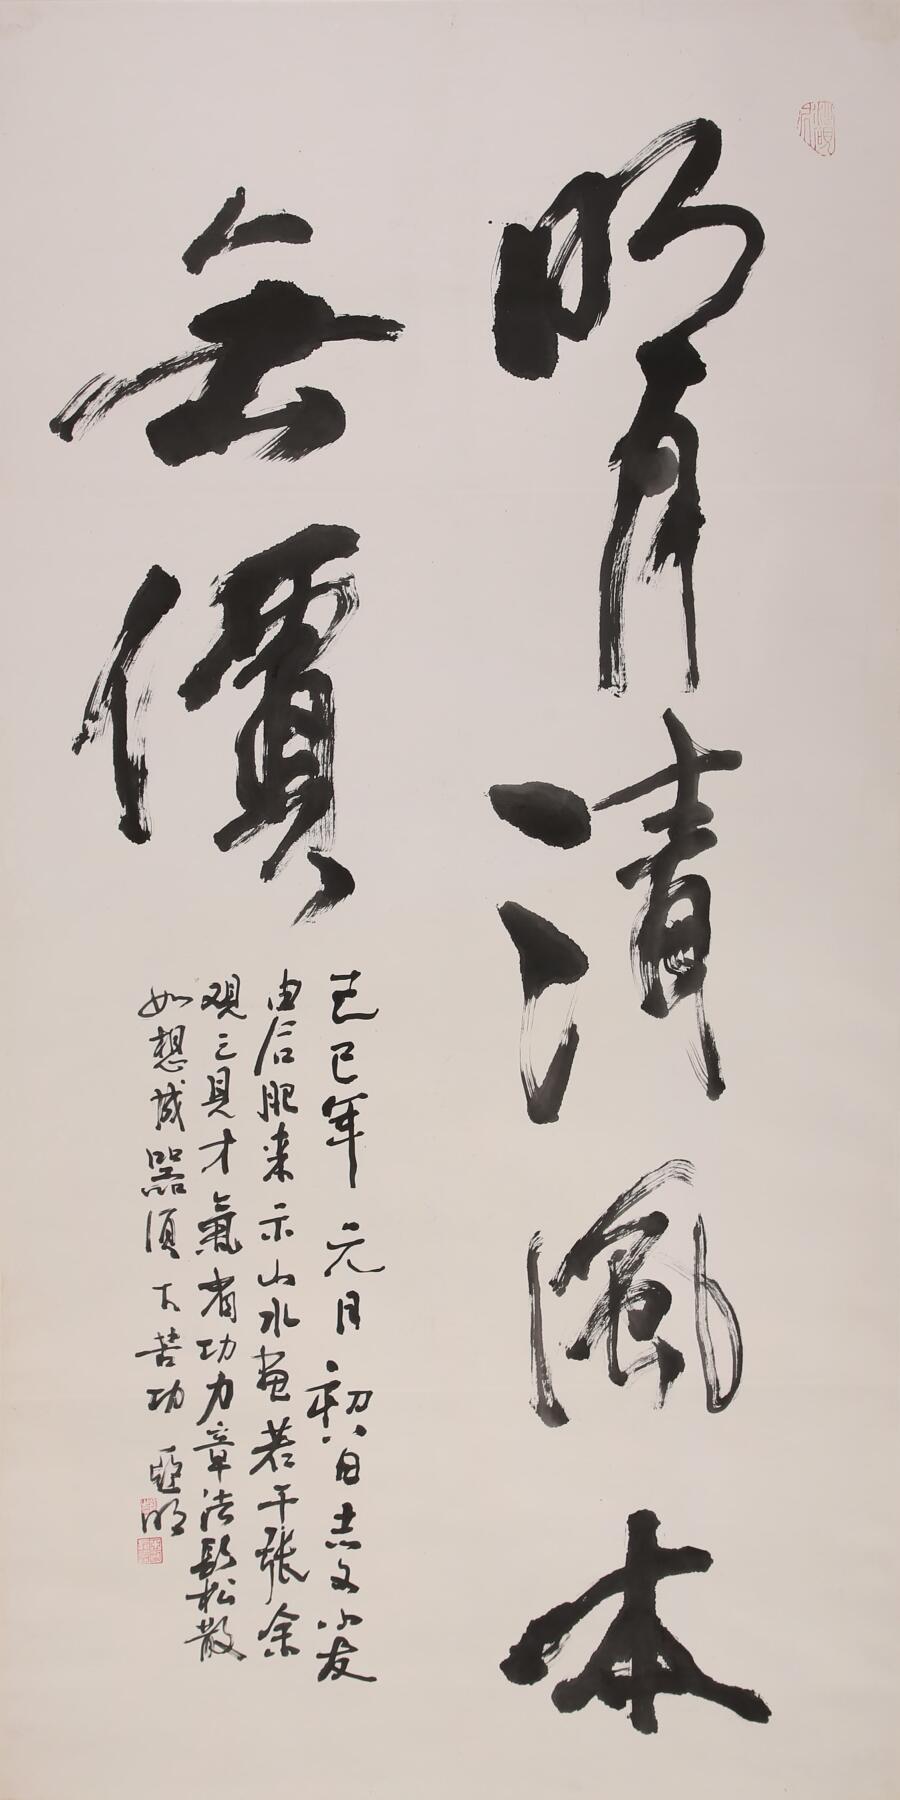 明月清風本
無價
己巳年元月初八日志文小友
由合肥来示山水画若干張余
观之具才氣省功力章法鬆散
如想成器須下苦功 亞明